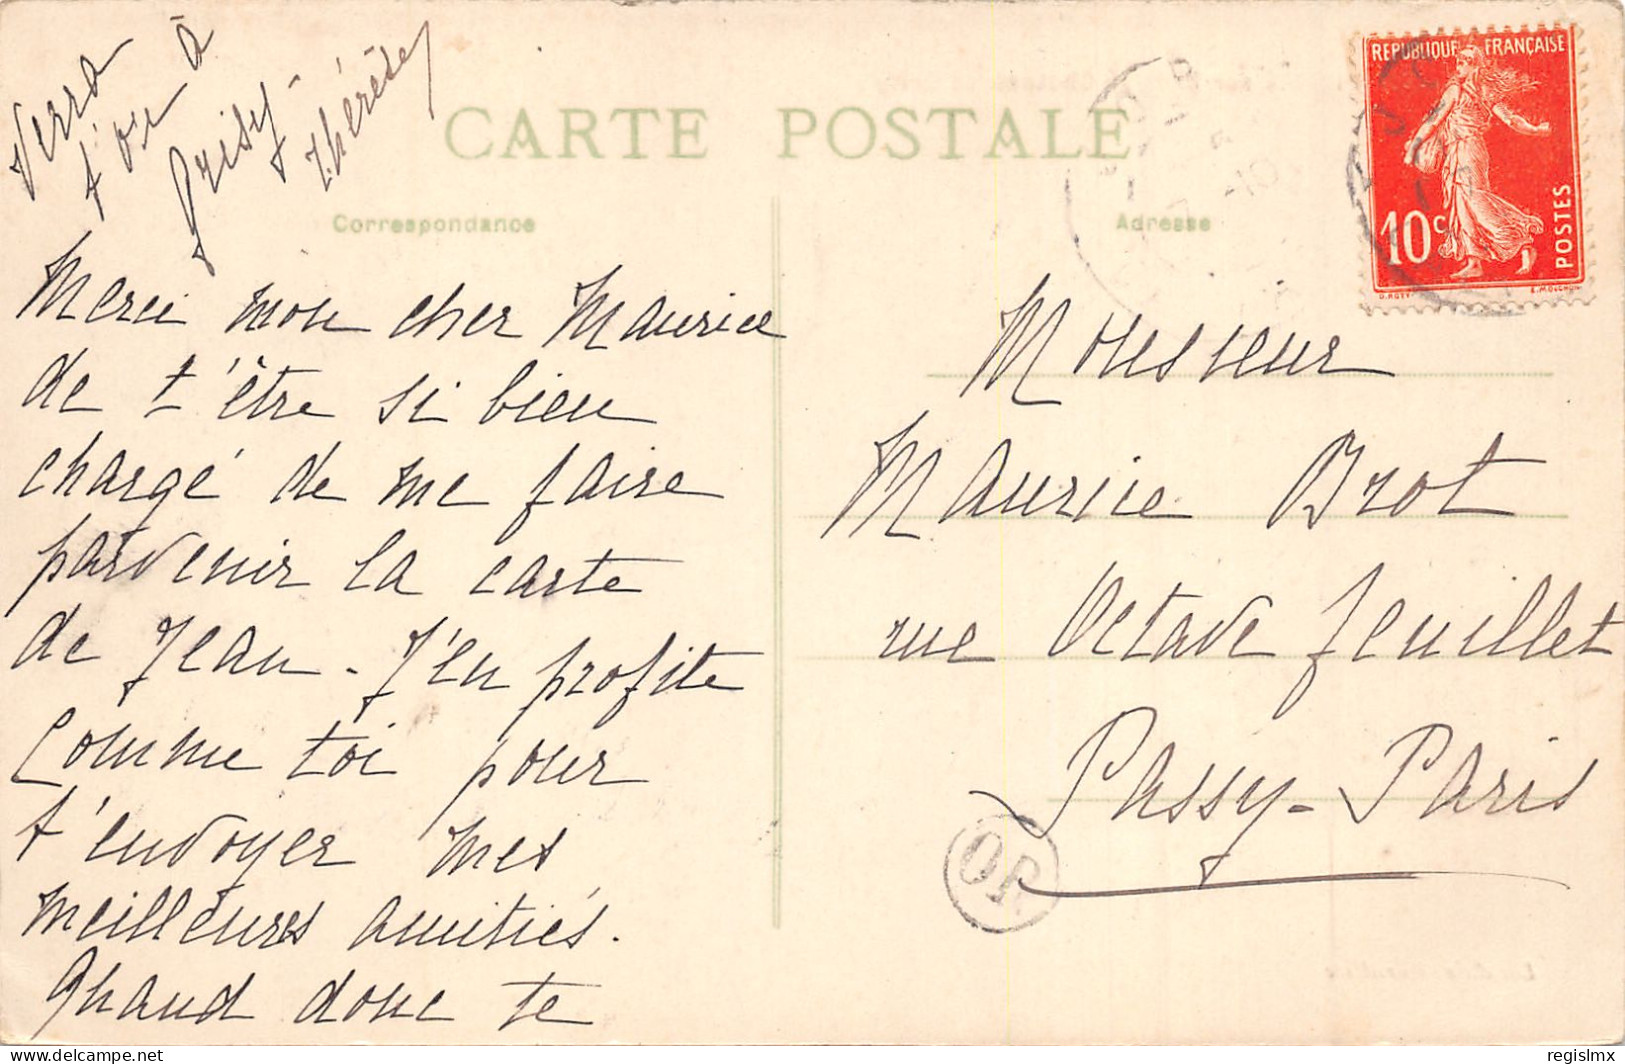 Verra
t'on à
Prisy -
Thérèse
CARTE POSTALE
Correspondance
Adresse
REPUBLIQUE FRANÇAISE
10c
POSTES
Merci mon cher Maurice
de t'être si bien
chargé de me faire
parvenir la carte
de Jean - J'en profite
comme toi pour
t'envoyer mes
meilleures amitiés.
Quand donc te
Monsieur
Maurice Brot
rue Octave Feuillet
Passy - Paris
OR
delcampe.net
regislmx